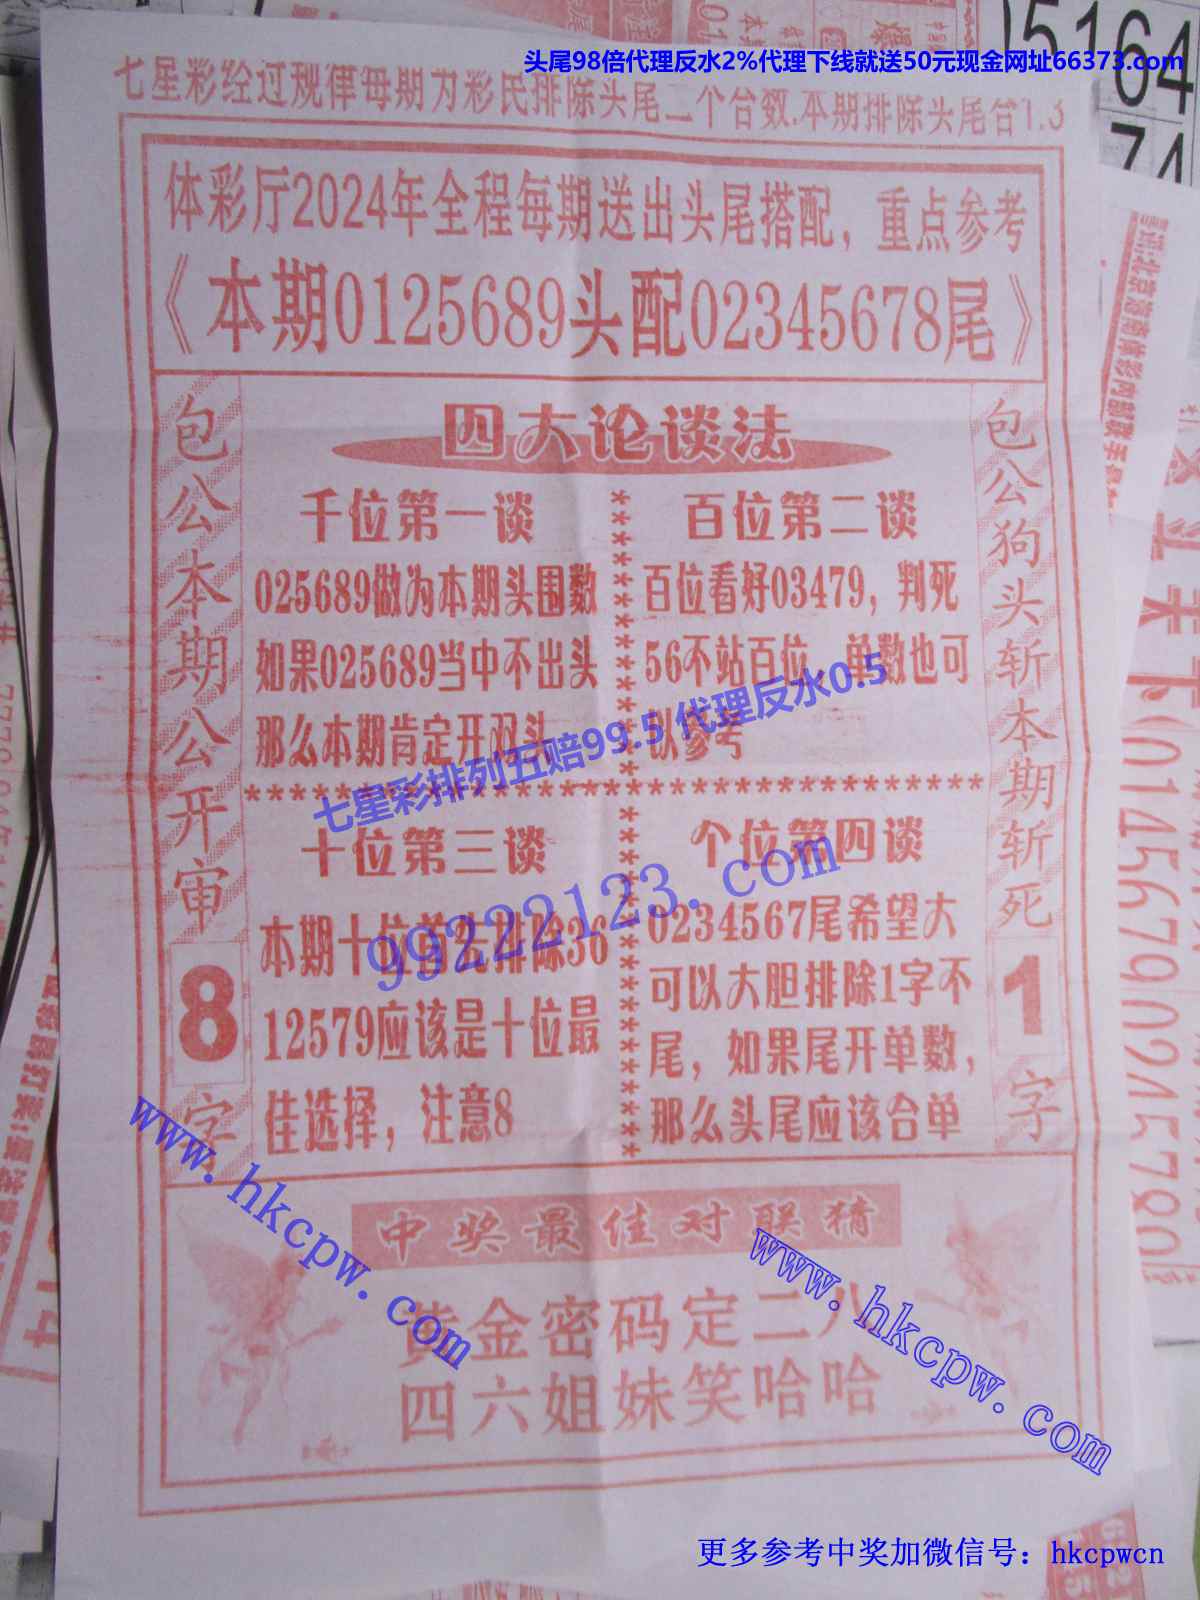 头尾98倍代理反水2%代理下线就送50元现金网址66373.com
七星彩经过规律每期为彩民排除头尾二个合数.本期排除头尾合1.3
体彩厅2024年全程每期送出头尾搭配，重点参考
《本期0125689头配02345678尾》
包公本期公开审
8
字
四大论谈法
千位第一谈
025689做为本期头围数
如果025689当中不出头
那么本期肯定开双头
百位第二谈
百位看好03479，判死
56不站百位，单数也可
以参考
七星彩排列五赔99.5 代理反水0.5
十位第三谈
本期十位首先排除36
12579应该是十位最
佳选择，注意8
99222123.com
个位第四谈
0234567尾希望大
可以大胆排除1字不
尾，如果尾开单数，
那么头尾应该合单
包公狗头斩本期斩死
1
字
www.hkcpw.com
中奖最佳对联猜
黄金密码定二八
四六姐妹笑哈哈
www.hkcpw.com
更多参考中奖加微信号：hkcpwcn
5164
64
74